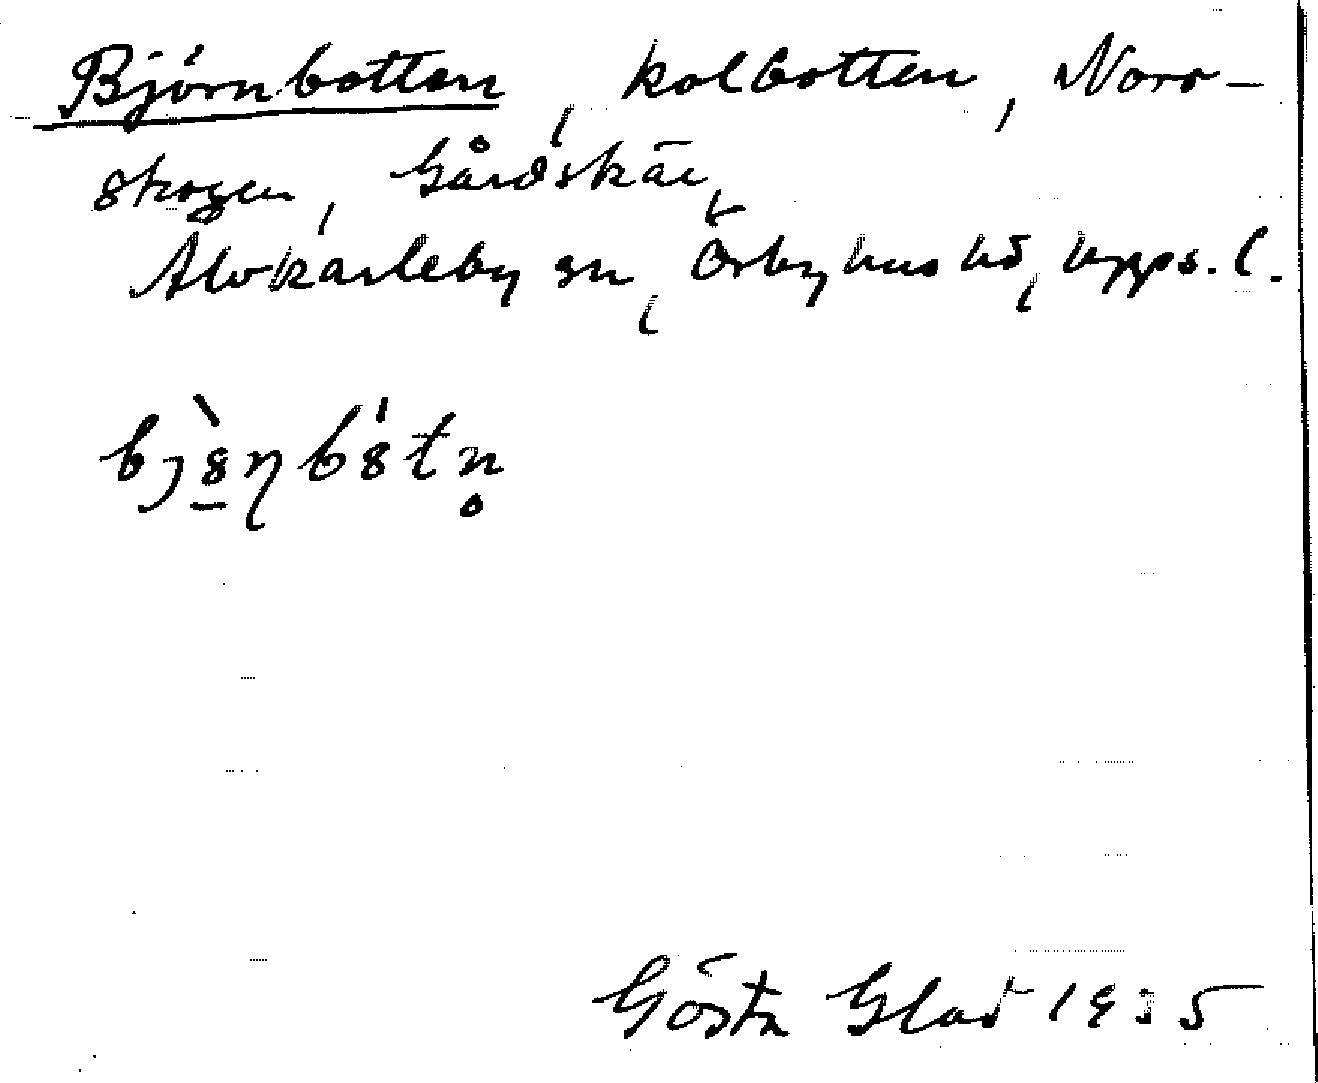 Björnbotten, kolbotten, Norr-
skogen, Gårdskär,
Älvkarleby sn, Örbyhus hd, Upps. l.
Gösta Glad 1935